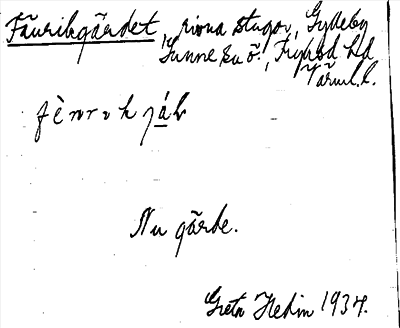 Fäurikgärdet, rivna stugor, Gylleby
Sunne sn ö., Fryksd. hd
Värml. l.
Nu gärde.
Greta Hedin 1934.